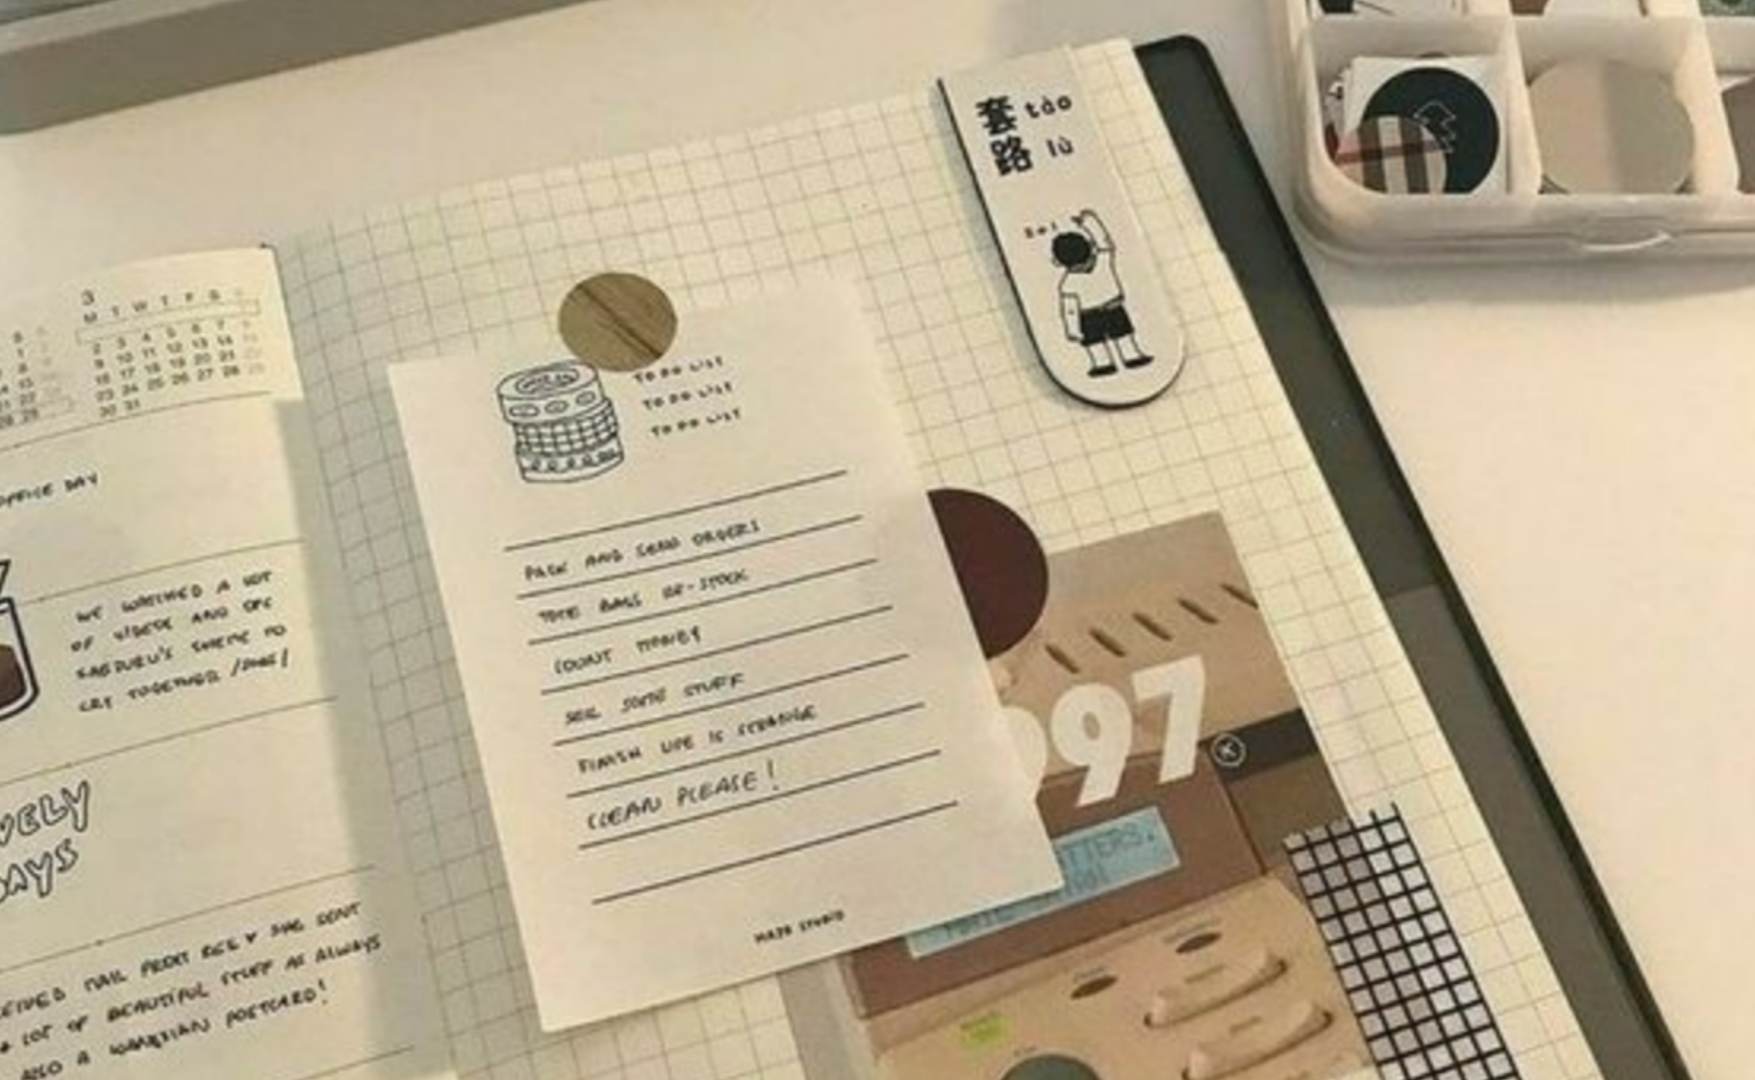 3
M T W T F S S
2 3 4 5 6 7 8
9 10 11 12 13 14 15
16 17 18 19 20 21 22
23 24 25 26 27 28 29
30 31
OFFICE DAY
WE WATCHED A LOT
OF VIDEOS AND
TO
CRY TOGETHER
VELY
DAYS
MAIL FROM BEE ♥ SHE SENT
A LOT OF BEAUTIFUL STUFF AS ALWAYS
ALSO A WANGXIAN POSTCARD!
TO DO LIST
TO DO LIST
TO DO LIST
PACK AND SEND ORDERS
TOTE BAGS RE-STOCK
COUNT MONEY
SELL SOME STUFF
FINISH LIFE IS STRANGE
CLEAN PLEASE!
套 tào
路 lù
997
K
TTERS.